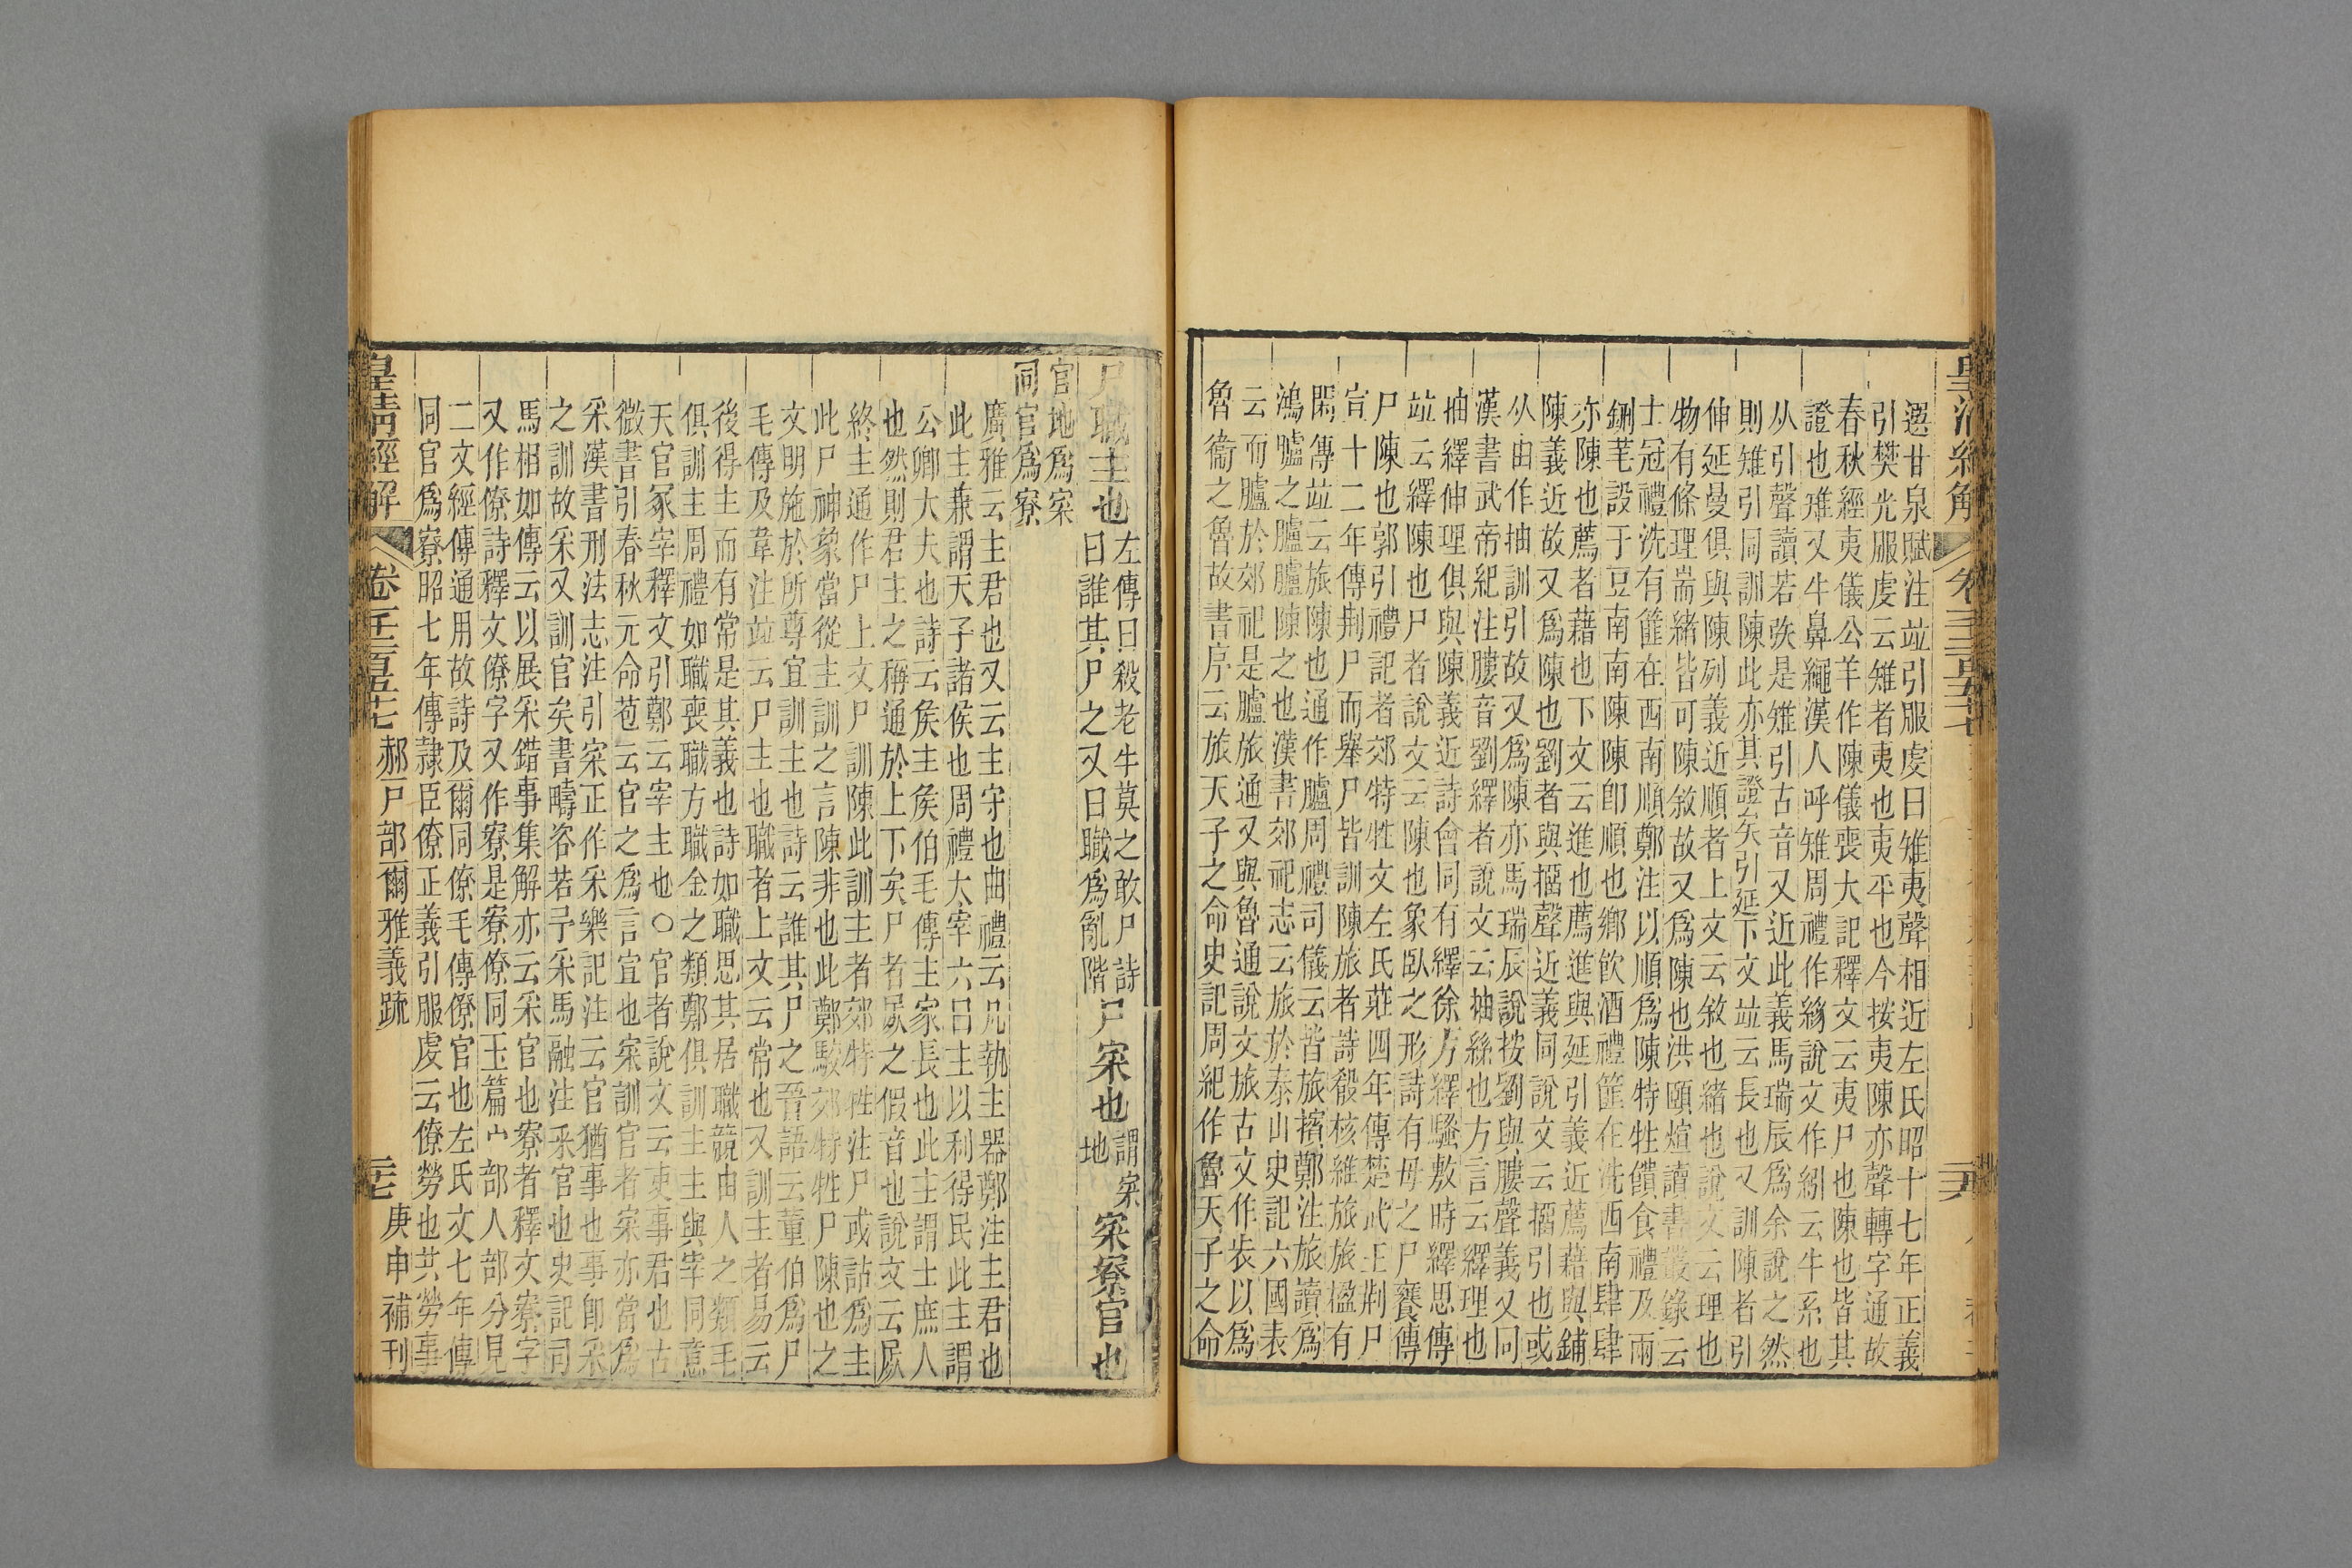 選甘泉賦注竝引服虔曰雉夷聲相近左氏昭十七年正義
引樊光服虔云雉者夷也夷平也今按夷陳亦聲轉字通故
春秋經夷儀公羊作陳儀喪大記釋文云夷尸也陳也皆其
證也雉又牛鼻繩漢人呼雉周禮作絼說文作紖云牛系也
从引聲讀若矤是雉引古音又近此義馬瑞辰為余說之然
則雉引同訓陳此亦其證矣引延下文竝云長也又訓陳者引
伸延曼俱與陳列義近順者上文云敘也緒也說文云理也
物有條理耑緒皆可陳敘故又爲陳也洪頤煊讀書叢錄云
士冠禮洗有篚在西南順鄭注以順爲陳特牲饋食禮及兩
鉶芼設于豆南南陳陳卽順也鄉飲酒禮篚在洗西南肆肆
亦陳也薦者藉也下文云進也薦進與延引義近薦藉與鋪
陳義近故又爲陳也劉者與𢭏聲近義同說文云𢭏引也或
从由作抽訓引故又爲陳亦馬瑞辰說按劉與膢聲義又同
漢書武帝紀注膢音劉繹者說文云抽絲也方言云繹理也
抽繹伸理俱與陳義近詩會同有繹徐方繹騷敷時繹思傳
竝云繹陳也尸者說文云陳也象臥之形詩有母之尸饔傳
尸陳也郭引禮記者郊特牲文左氏莊四年傳楚武王荆尸
宣十二年傳荆尸而舉尸皆訓陳旅者詩殽核維旅旅楹有
閑傳竝云旅陳也通作臚周禮司儀云皆旅擯鄭注旅讀爲
鴻臚之臚臚陳之也漢書郊祀志云旅於泰山史記六國表
云而臚於郊祀是臚旅通又與魯通說文旅古文作㫃以爲
魯衞之魯故書序云旅天子之命史記周紀作魯天子之命
尸職主也左傳曰殺老牛莫之敢尸詩曰誰其尸之又曰職爲亂階尸寀也謂寀地寀寮官也
官地爲寀同官爲寮
廣雅云主君也又云主守也曲禮云凡執主器鄭注主君也
此主兼謂天子諸侯也周禮大宰六曰主以利得民此主謂
公卿大夫也詩云矦主矦伯毛傳主家長也此主謂士庶人
也然則君主之稱通於上下矣尸者㞐之假音也說文云㞐
終主通作尸上文尸訓陳此訓主者郊特牲注尸或詁爲主
此尸神象當從主訓之言陳非也此鄭駁郊特牲尸陳也之
文明施於所尊宜訓主也詩云誰其尸之晉語云董伯爲尸
毛傳及韋注竝云尸主也職者上文云常也又訓主者易云
後得主而有常是其義也詩如職思其居職競由人之類毛
俱訓主周禮如職喪職方職金之類鄭俱訓主主與宰同意
天官冢宰釋文引鄭云宰主也○官者說文云吏事君也古
微書引春秋元命苞云官之爲言宜也寀訓官者寀亦當爲
采漢書刑法志注引寀正作采樂記注云官猶事也事卽采
之訓故采又訓官矣書疇咨若予采馬融注采官也史記司
馬相如傳云以展采錯事集解亦云采官也寮者釋文寮字
又作僚詩釋文僚字又作寮是寮僚同玉篇宀部人部分見
二文經傳通用故詩及爾同僚毛傳僚官也左氏文七年傳
同官爲寮昭七年傳隸臣僚正義引服虔云僚勞也共勞事
皇清經解 卷千二百五十七 郝戸部爾雅義疏 二十七 庚申補刊